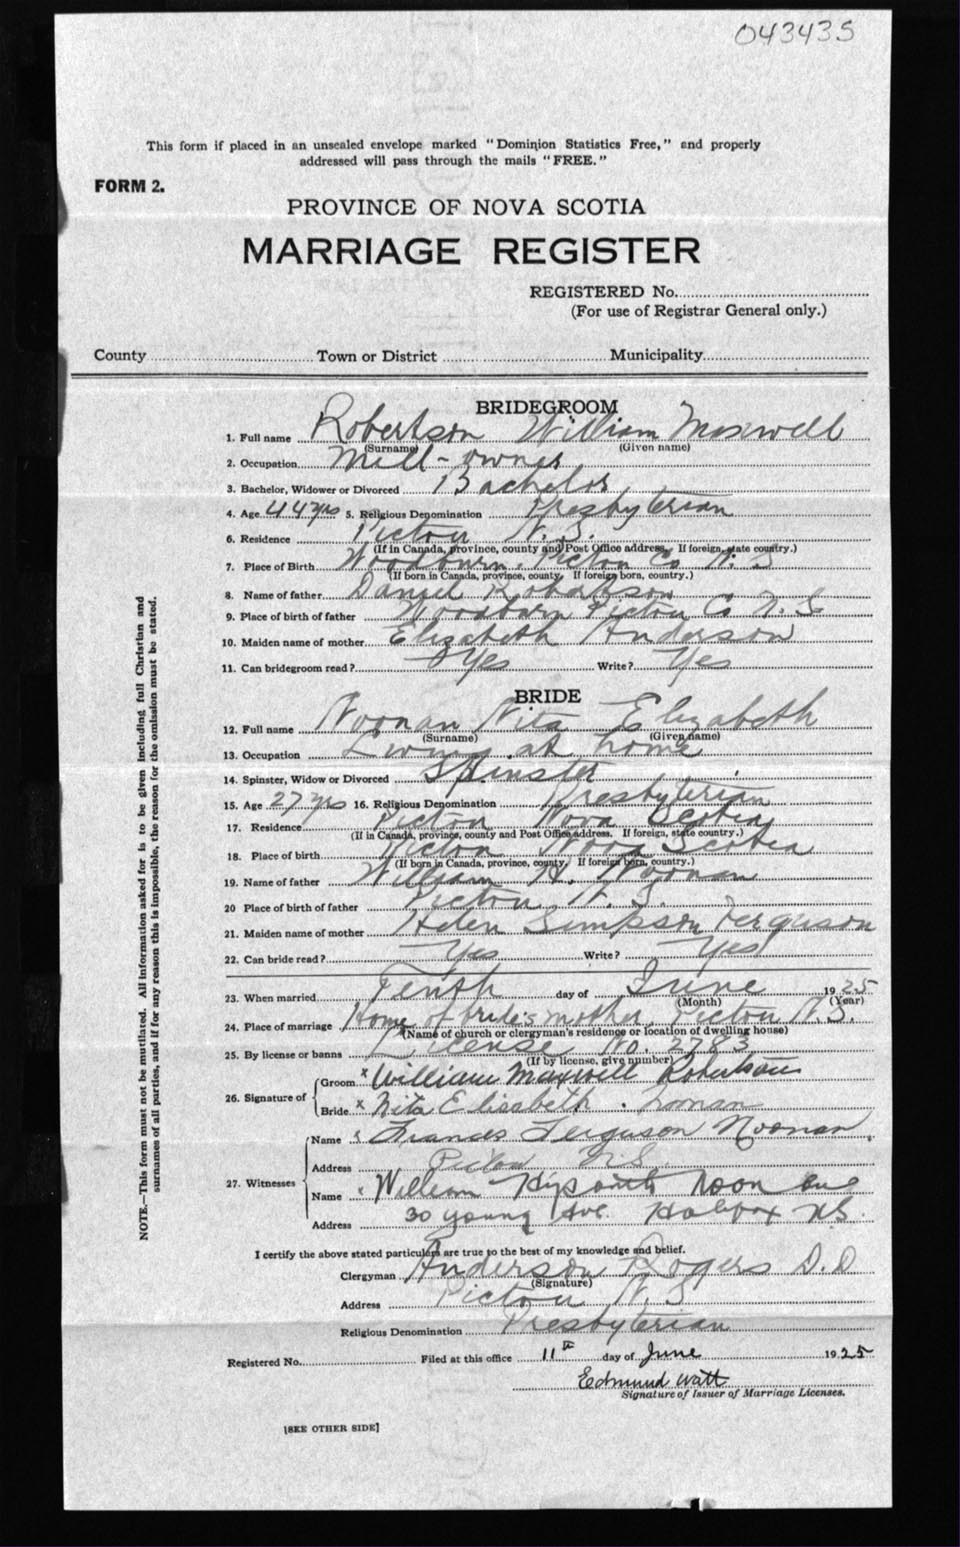 043435
This form if placed in an unsealed envelope marked "Dominion Statistics Free," and properly
addressed will pass through the mails "FREE."
FORM 2.
PROVINCE OF NOVA SCOTIA
MARRIAGE REGISTER
REGISTERED No.
(For use of Registrar General only.)
County Town or District Municipality
BRIDEGROOM
1. Full name Robertson William Maxwell
(Surname) (Given name)
2. Occupation Mill-owner
3. Bachelor, Widower or Divorced Bachelor
4. Age 44 yrs 5. Religious Denomination Presbyterian
6. Residence Pictou N. S.
(If in Canada, province, county and Post Office address. If foreign, state country.)
7. Place of Birth Woodburn, Pictou Co N. S
(If born in Canada, province, county. If foreign born, country.)
8. Name of father Daniel Robertson
9. Place of birth of father Woodburn Pictou Co N. S
10. Maiden name of mother Elizabeth Anderson
11. Can bridegroom read? Yes Write? Yes
BRIDE
12. Full name Noonan Nita Elizabeth
(Surname) (Given name)
13. Occupation Living at home
14. Spinster, Widow or Divorced Spinster
15. Age 27 yrs 16. Religious Denomination Presbyterian
17. Residence Pictou Nova Scotia
(If in Canada, province, county and Post Office address. If foreign, state country.)
18. Place of birth Pictou Nova Scotia
(If born in Canada, province, county. If foreign born, country.)
19. Name of father William H. Noonan
20 Place of birth of father Pictou, N. S.
21. Maiden name of mother Helen Simpson Ferguson
22. Can bride read? Yes Write? Yes
23. When married Tenth day of June 1925
(Month) (Year)
24. Place of marriage Home of bride's mother, Pictou N. S.
(Name of church or clergyman's residence or location of dwelling house)
25. By license or banns License No. 2783
(If by license, give number)
26. Signature of Groom x William Maxwell Robertson
Bride x Nita Elizabeth Noonan
27. Witnesses Name Frances Ferguson Noonan
Address Pictou N.S.
Name William Noonan
Address 30 Young Ave. Halifax N.S.
I certify the above stated particulars are true to the best of my knowledge and belief.
Clergyman Anderson Rogers D.D
(Signature)
Address Pictou N. S
Religious Denomination Presbyterian
Registered No. Filed at this office 11th day of June 1925
Edmund Watt
Signature of Issuer of Marriage Licenses.
[SEE OTHER SIDE]
NOTE.—This form must not be mutilated. All information asked for is to be given including full Christian and
surnames of all parties, and if for any reason this is impossible, the reason for the omission must be stated.